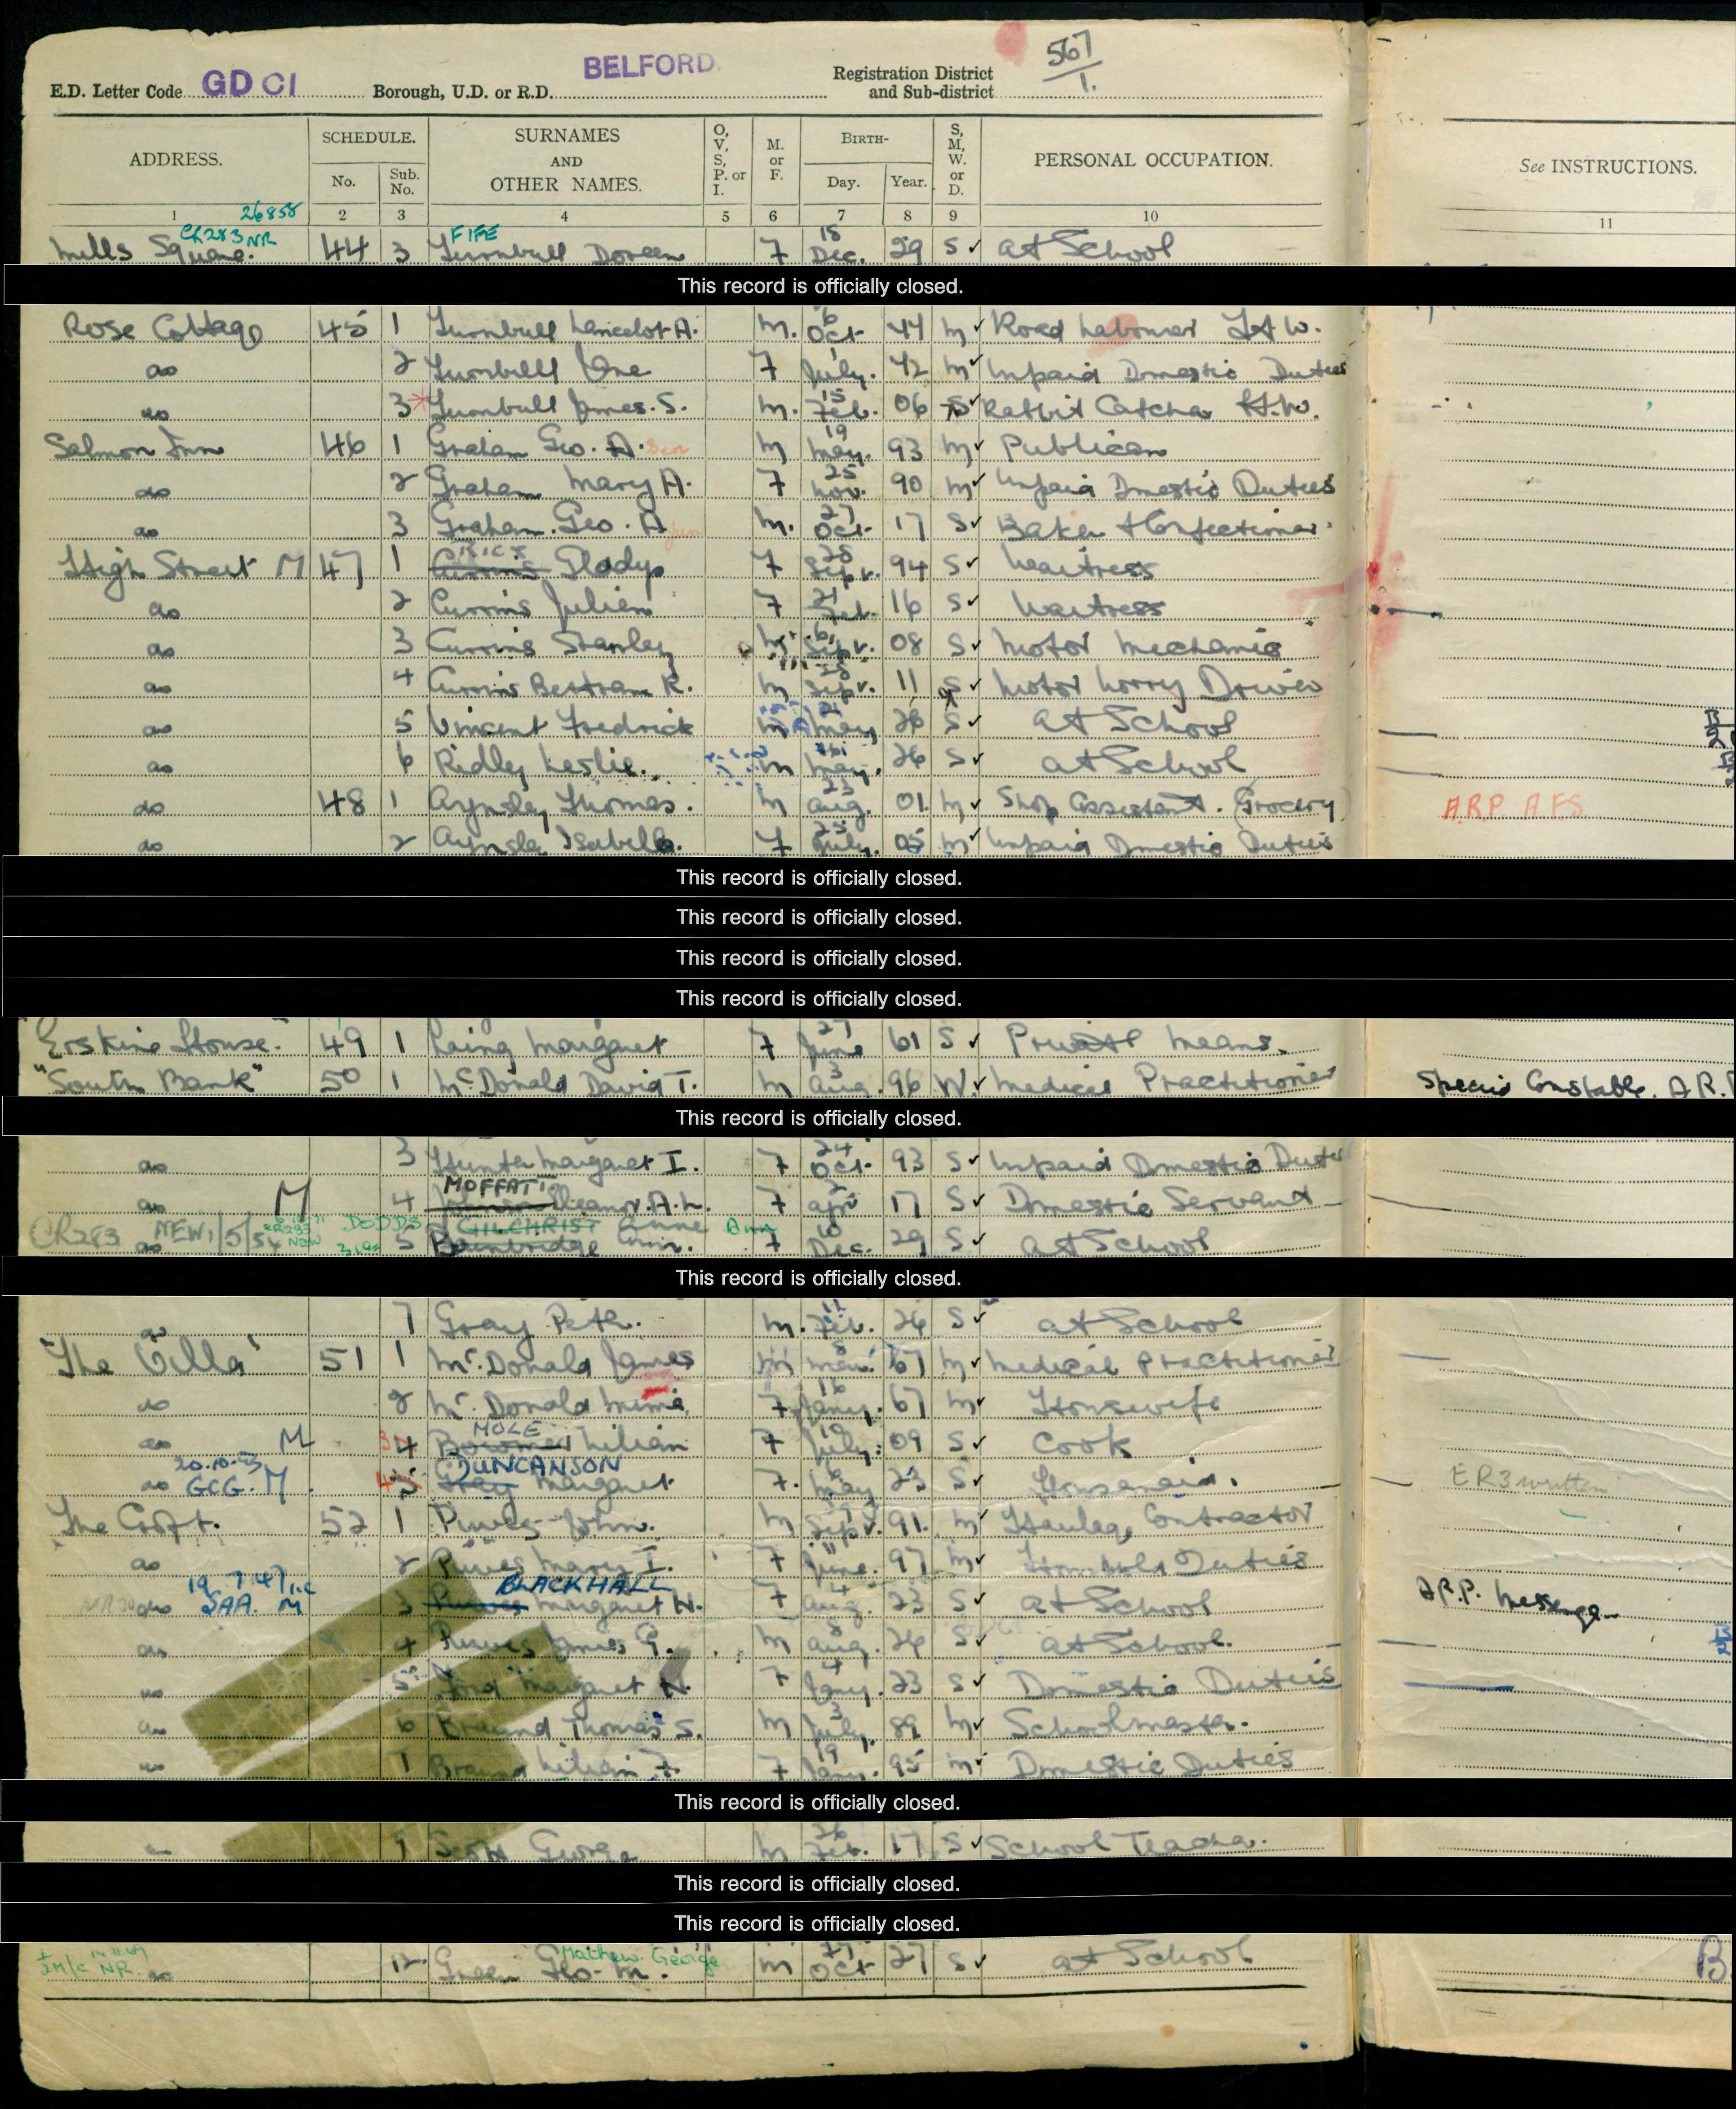 E.D. Letter Code GD CI Borough, U.D. or R.D. BELFORD Registration District and Sub-district 567/1.
ADDRESS. SCHEDULE. No. Sub. No. SURNAMES AND OTHER NAMES. O, V, S, P. or I. M. or F. BIRTH- Day. Year. S, M, W. or D. PERSONAL OCCUPATION. See INSTRUCTIONS.
1 2 3 4 5 6 7 8 9 10 11
26855
CR283 NR FIFE
Mills Square. 44 3 Turnbull Doreen F 18 Dec. 29 S ✓ at School
This record is officially closed.
Rose Cottage 45 1 Turnbull Lancelot A. M. 6 Oct 44 M ✓ Road Labourer
do 2 Turnbull Jane F 1 July. 42 M ✓ Unpaid Domestic Duties
do 3 Turnbull James. S. M. 15 Feb. 06 S ✓ Rabbit Catcher H.W.
Salmon Inn 46 1 Graham Geo. A. Sen M 19 May. 93 M ✓ Publican
do 2 Graham Mary A. F 25 Nov. 90 M ✓ Unpaid Domestic Duties
do 3 Graham. Geo. A Jun M. 27 Oct 17 S ✓ Baker & Confectioner
High Street M 47 1 RICK Currins Gladys F 28 Sept. 94 S ✓ Waitress
do 2 Currins Julien F 21 Feb. 16 S ✓ Waitress
do 3 Currins Stanley M. 6 Sept. 08 S ✓ Motor Mechanic
do 4 Currins Bertram R. M 28 Sept. 11 S Motor Lorry Driver
do 5 Vincent Fredrick M 21 May 26 S ✓ at School
do 6 Ridley Leslie. M May. 26 S ✓ at School
do 48 1 Aynsley Thomas. M 23 Aug. 01 M ✓ Shop Assistant. (Grocery) A.R.P. A.F.S.
do 2 Aynsley Isabella. F 25 July. 05 M ✓ Unpaid Domestic Duties
This record is officially closed.
This record is officially closed.
This record is officially closed.
This record is officially closed.
"Erskine House." 49 1 Laing Margaret F 27 June 61 S ✓ Private Means.
"South Bank" 50 1 McDonald David T. M 3 Aug. 96 W. ✓ Medical Practitioner Special Constable. A.R.P
This record is officially closed.
do 3 Hunter Margaret I. F 24 Oct. 93 S ✓ Unpaid Domestic Duties
do M 4 MOFFATT Eleanor. A. L. F 2 Apr 17 S ✓ Domestic Servant
CR283 NEW 1/5/54 DODDS GILCHRIST Anne Ann
do 5 Bainbridge Ann. F 10 Dec. 29 S ✓ at School
This record is officially closed.
do 7 Gray Peter. M. 11 Feb. 26 S ✓ at School
"The Villa" 51 1 McDonald James M 8 Mar. 67 M ✓ Medical Practitioner
do 2 McDonald Mimie F 16 Jany. 67 M ✓ Housewife
do M 4 MOLE Lilian F 10 July. 09 S ✓ Cook
20.10.43 DUNCANSON
do GCG. M. 5 Gray Margaret F. 6 May 23 S ✓ Housemaid. ER3 written
The Croft. 52 1 Purves John. M Sept. 91. M ✓ Haulage Contractor
do 2 Purves Mary I. F 11 June. 97 M ✓ Household Duties
19 7 47 BLACKHALL
do SAA. M 3 Purves Margaret W. F 4 Aug. 23 S ✓ at School A.R.P. Messenger
do 4 Purves James G. M 8 Aug. 26 S ✓ at School.
do 5 Ford Margaret N. F 4 Jany. 23 S ✓ Domestic Duties
do 6 Braund Thomas S. M 3 July. 89 M ✓ Schoolmaster.
do 7 Braund Lilian F. F 19 Jany. 95 M ✓ Domestic Duties
This record is officially closed.
do 9 Scott George M 26 Feb. 17 S ✓ School Teacher.
This record is officially closed.
This record is officially closed.
Mathew George
do 12. Green Geo. M. M 27 Oct 27 S ✓ at School B